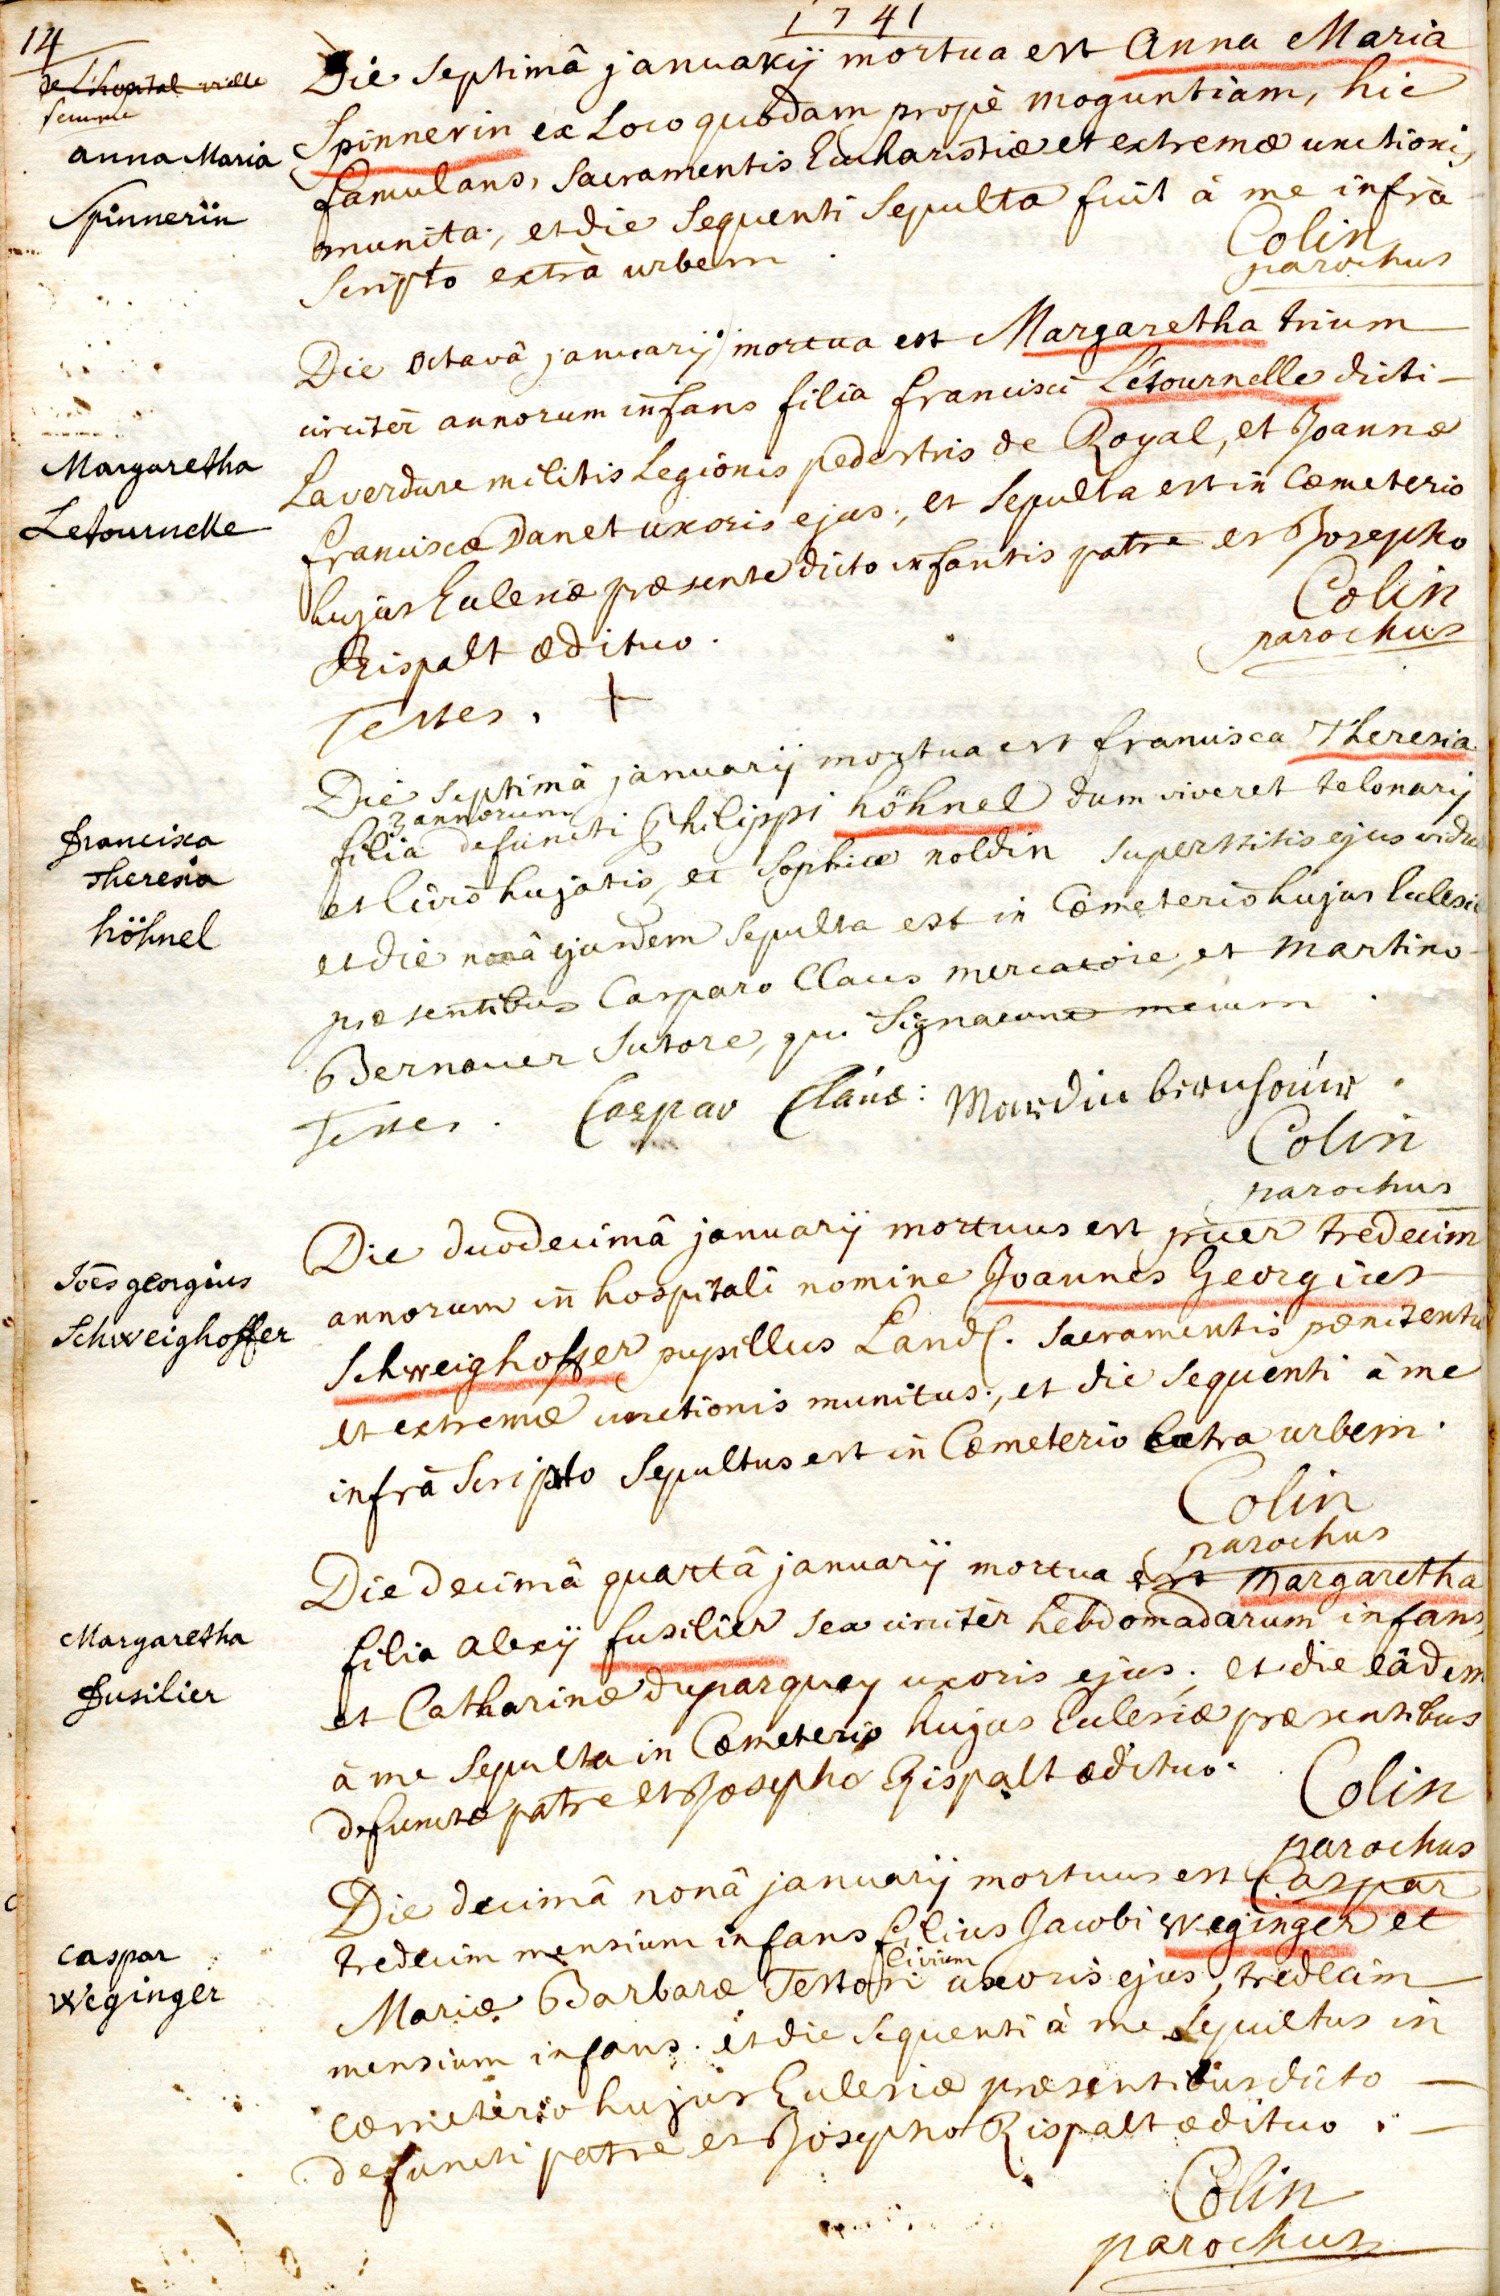 1741
14
de L'hopital vielle
femme
anna Maria
Spinnerin
Die septimâ januarij mortua est Anna Maria
Spinnerin ex Loco quodam propè moguntiam, hic
famulans, sacramentis Eucharistiæ et extremæ unctionis
munita, et die sequenti sepulta fuit à me infrà
scripto extrà urbem.
Colin
parochus
Margaretha
Letournelle
Die octavâ januarij mortua est Margaretha trium
circitèr annorum infans filia francisci Létournelle dicti
Laverdure militis Legionis pedestris de Royal, et Joannæ
franciscæ Danet uxoris ejus, et sepulta est in Cœmeterio
hujus Eclesiæ præsente dicto infantis patre et Josepho
Rispalt ædituo.
Colin
parochus
Testes. +
francisca
Theresia
höhnel
Die septimâ januarij mortua est francisca Theresia
3 annorum
filia defuncti Philippi höhnel dum viveret telonarij
et civis hujatis, et Sophiæ noldin superstitis ejus viduæ
et die nonâ ejusdem sepulta est in Cœmeterio hujus Eclesiæ
præsentibus Casparo Claus mercatore, et Martino
Bernauer sutore, qui signarunt mecum.
Testes. Caspar Claus: Mardin
Colin
parochus
Joēs georgius
Schweighoffer
Die duodecimâ januarij mortuus est puer tredecim
annorum in hospitali nomine Joannes Georgius
Schweighoffer pupillus Land. sacramentis pœnitentiæ
et extremæ unctionis munitus, et die sequenti à me
infrà scripto sepultus est in Cœmeterio Extra urbem.
Colin
parochus
Margaretha
fusilier
Die decimâ quartâ januarij mortua est Margaretha
filia alexij fusilier sex circitèr hebdomadarum infans
et Catharinæ duparquay uxoris ejus, et die eâdem
à me sepulta in Cœmeterio hujus Eclesiæ præsentibus
defunctæ patre et Josepho Rispalt ædituo.
Colin
parochus
caspar
weginger
Die decimâ nonâ januarij mortuus est Caspar
tredecim mensium infans filius Jacobi weginger et
civium
Mariæ Barbaræ Testori uxoris ejus, tredecim
mensium infans. et die sequenti à me sepultus in
cœmeterio hujus Eclesiæ præsentibus dicto
defuncti patre et Josepho Rispalt ædituo.
Colin
parochus